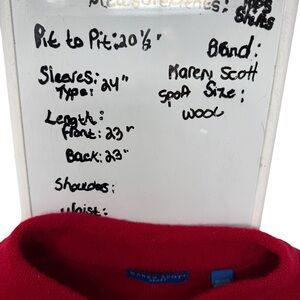 Measurements: Tops
Shirts
Pit to Pit: 20 ½"
Brand:
Karen Scott
Sport
Sleeves: 24"
Type:
Size:
wool
Length:
Front: 23"
Back: 23"
Shoulder:
Waist:
KAREN SCOTT
SPORT